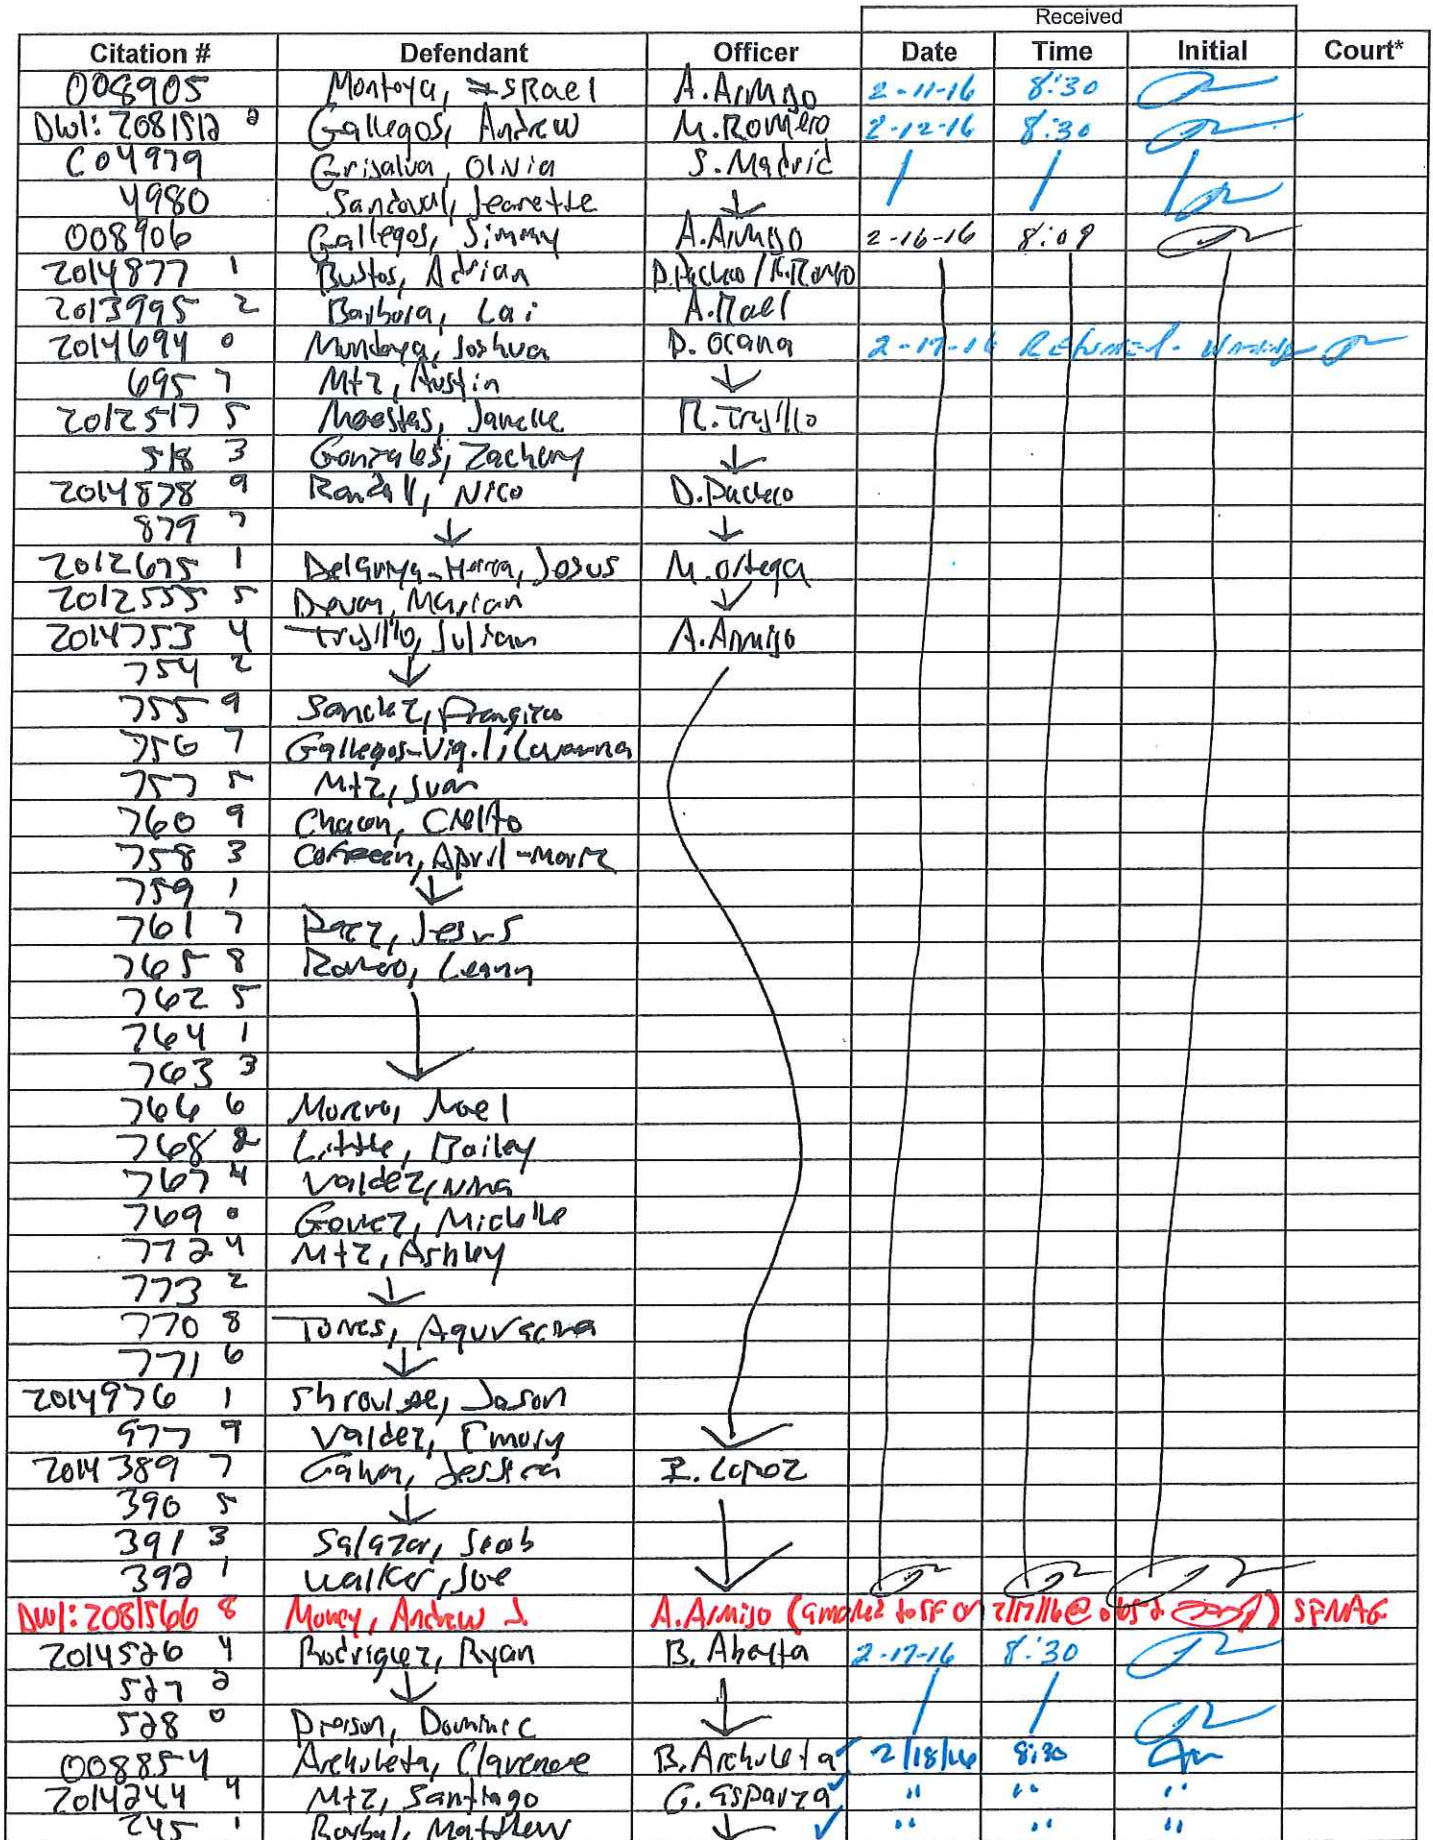 Received
Citation # Defendant Officer Date Time Initial Court*
008905 Montoya, Israel A. Armijo 2-11-16 8:30
DWI: 2081512 2 Gallegos, Andrew M. Romero 2-12-16 8:30
C04979 Grisalva, Olivia S. Madrid
4980 Sandoval, Jeanette ↓
008906 Gallegos, Simmy A. Armijo 2-16-16 8:09
2014877 1 Bustos, Adrian D. Pacheco /
2013995 2 Barbora, Lai A. Mael
2014694 0 Joshua D. Ocana 2-17-16 Returned - Warning
695 7 Mtz, Austin ↓
2012517 5 Maestas, Janelle R. Trujillo
518 3 Gonzales, Zachery ↓
2014878 9 Randall, Nico D. Pacheco
879 7 ↓ ↓
2012675 1 Jesus M. Ortega
2012555 5 Marian ↓
2014753 4 Trujillo, Julian A. Armijo
754 2 ↓
755 9 Sanchez,
756 7 Gallegos-Vigil,
757 5 Mtz, Juan
760 9 Chacon,
758 3 April-Marie
759 1 ↓
761 7 Paez, Jesus
765 8 Romero, Leann
762 5
764 1
763 3 ↓
766 6 Noel
768 2 Little, Bailey
767 4 Valdez, Nina
769 0 Gomez, Michelle
772 4 Mtz, Ashley
773 2 ↓
770 8 Torres,
771 6 ↓
2014976 1 Jason
977 9 Valdez, Emory ↓
2014389 7 Jessica I. Lopez
390 5 ↓
391 3 Salazar, Jacob
392 1 Walker, Joe ↓
DWI: 2081566 8 Money, Andrew J. A. Armijo ( to SF on 2/17/16 @ ) SFMAG
2014526 4 Rodriguez, Ryan B. Abeyta 2-17-16 8:30
527 2 ↓ ↓
528 0 Dominic ↓
008854 Archuleta, Clarence B. Archuleta ✓ 2/18/16 8:30
2014244 4 Mtz, Santiago G. Esparza ✓ " " "
245 1 Matthew ↓ ✓ " " "